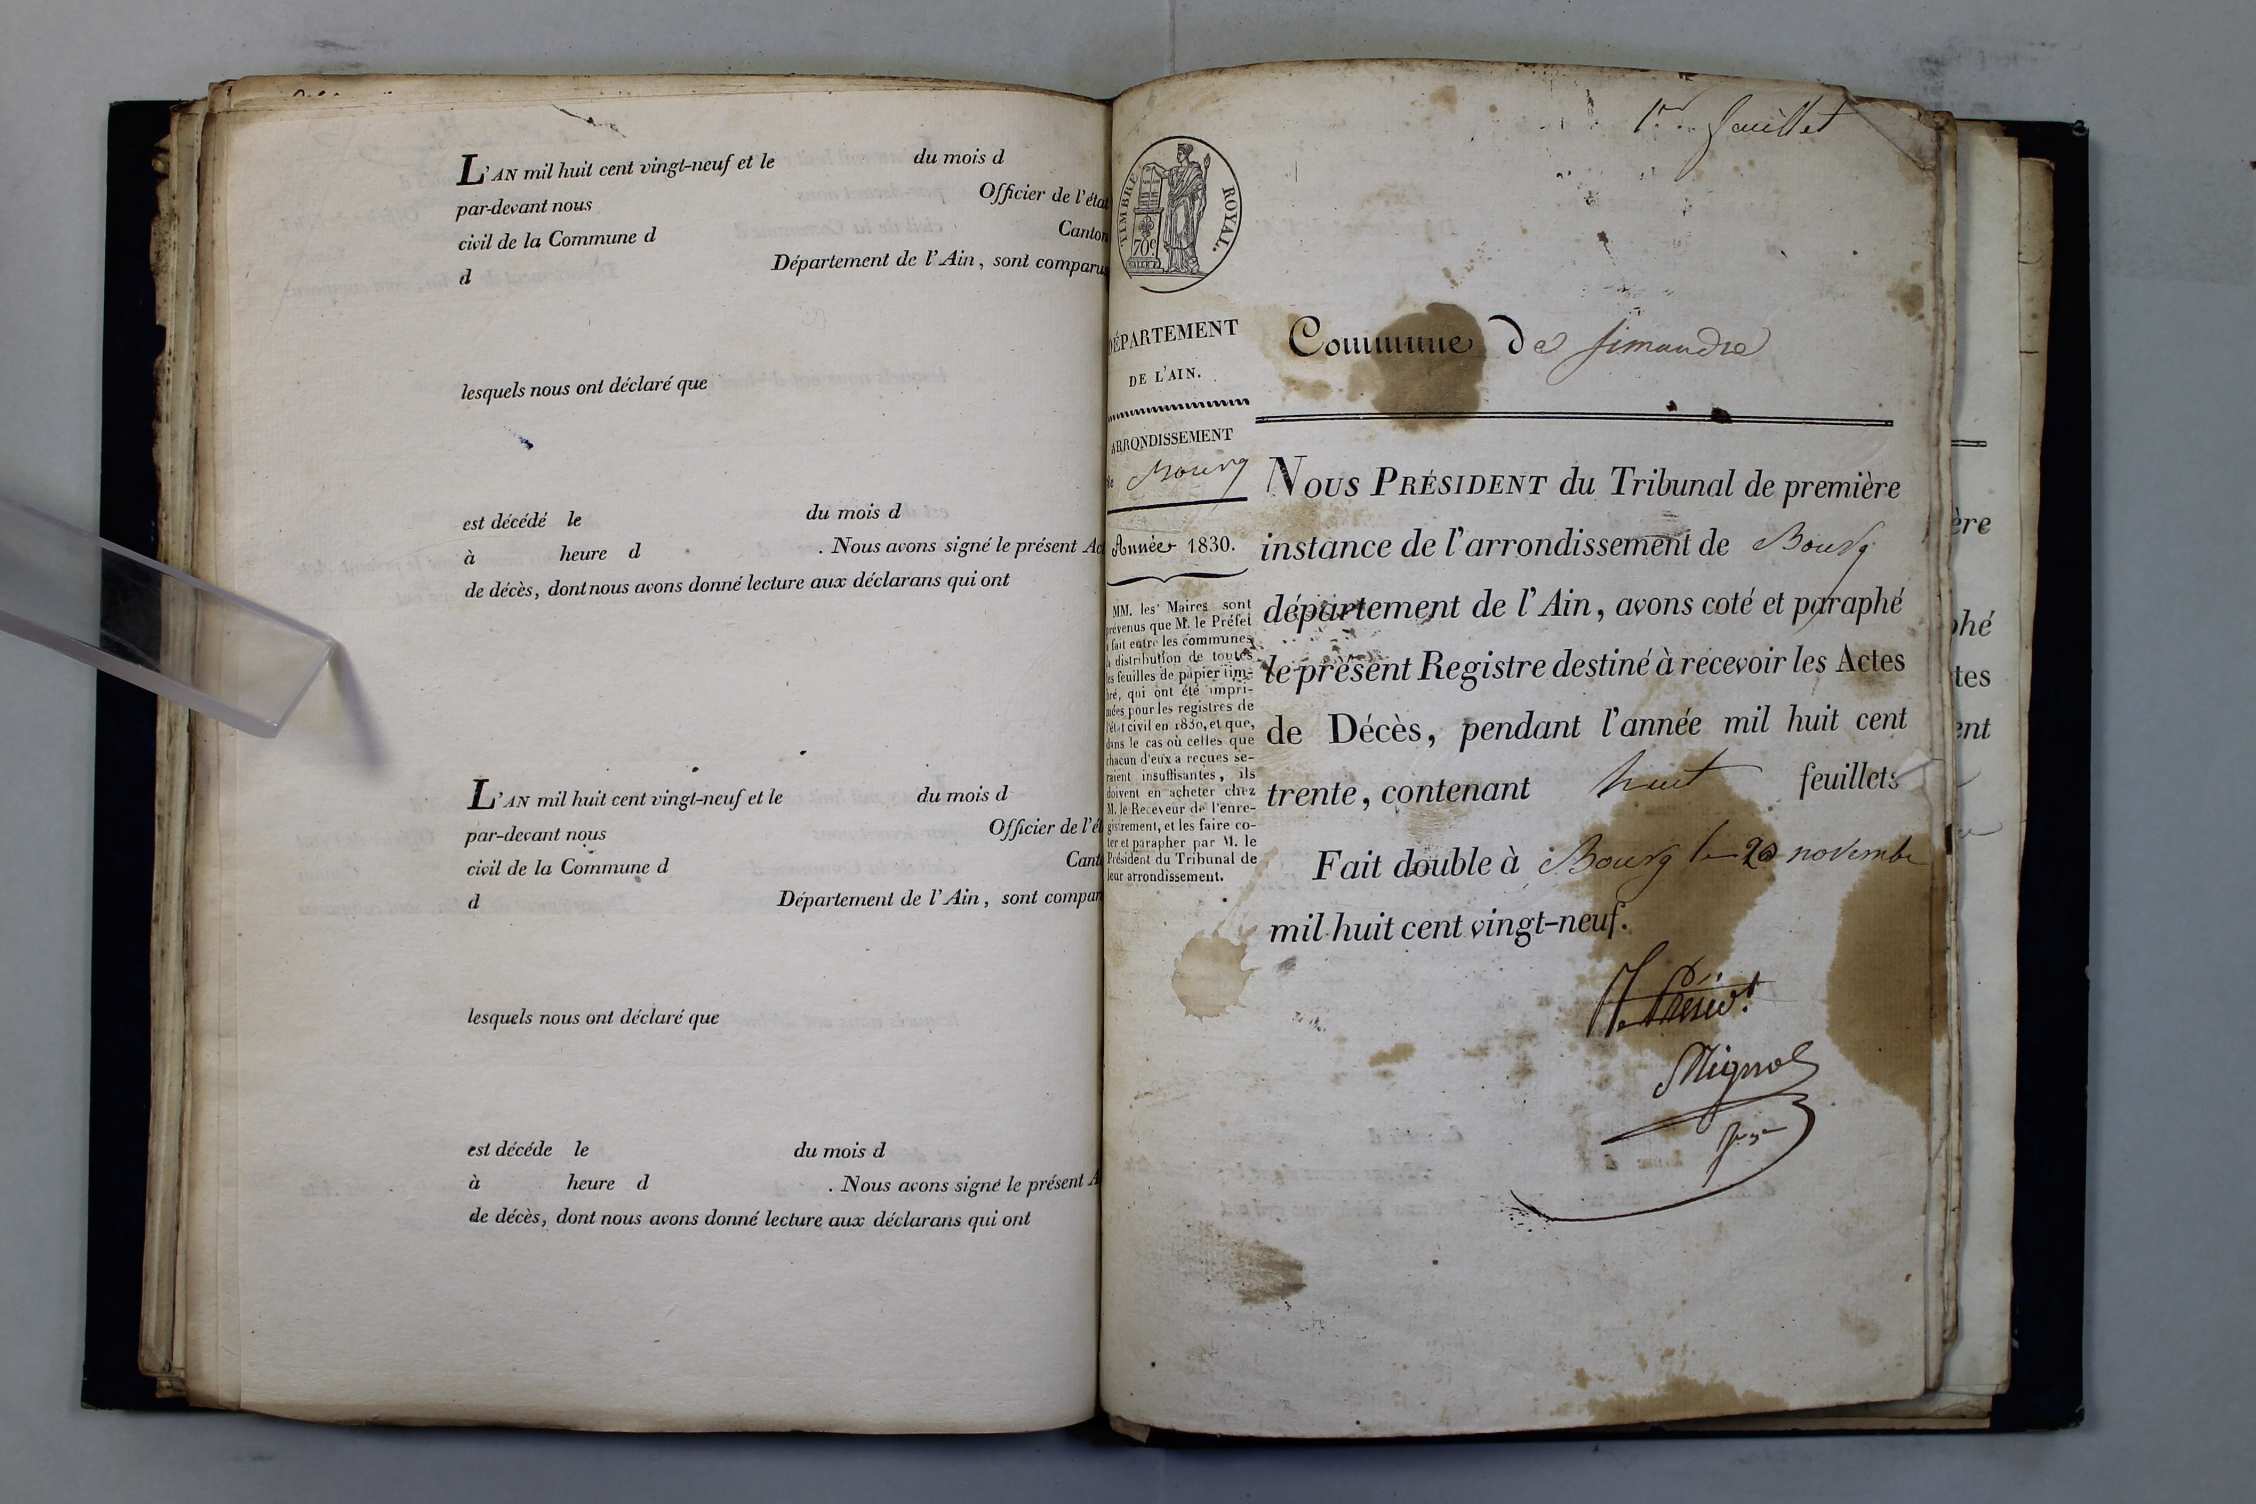 L'AN mil huit cent vingt-neuf et le du mois d
par-devant nous Officier de l'état
civil de la Commune d Canton
d Département de l'Ain, sont comparus
lesquels nous ont déclaré que
est décédé le du mois d
à heure d . Nous avons signé le présent Ac
de décès, dont nous avons donné lecture aux déclarans qui ont
L'AN mil huit cent vingt-neuf et le du mois d
par-devant nous Officier de l'ét
civil de la Commune d Cant
d Département de l'Ain, sont compar
lesquels nous ont déclaré que
est décéde le du mois d
à heure d . Nous avons signé le présent A
de décès, dont nous avons donné lecture aux déclarans qui ont
1er feuillet
TIMBRE ROYAL.
70c
DÉPARTEMENT
DE L'AIN.
ARRONDISSEMENT
de Bourg
Année 1830.
MM. les Maires sont
prévenus que M. le Préfet
a fait entre les communes
la distribution de toutes
les feuilles de papier tim-
bré, qui ont été impri-
mées pour les registres de
l'état civil en 1830, et que,
dans le cas où celles que
chacun d'eux a reçues se-
raient insuffisantes, ils
doivent en acheter chez
M. le Receveur de l'enre-
gistrement, et les faire co-
ter et parapher par M. le
Président du Tribunal de
leur arrondissement.
Commune de simandre
NOUS PRÉSIDENT du Tribunal de première
instance de l'arrondissement de Bourg
département de l'Ain, avons coté et paraphé
le présent Registre destiné à recevoir les Actes
de Décès, pendant l'année mil huit cent
trente, contenant huit feuillets
Fait double à Bourg le 20 novembre
mil huit cent vingt-neuf.
Mignot
juge
ère
phé
tes
ent